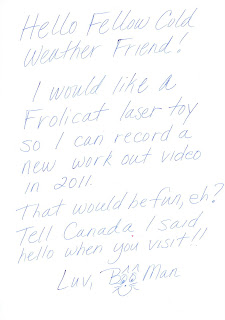 Hello Fellow Cold
Weather Friend!
I would like a
Frolicat laser toy
so I can record a
new work out video
in 2011.
That would be fun, eh?
Tell Canada I said
hello when you visit!!
Luv, Boo Man